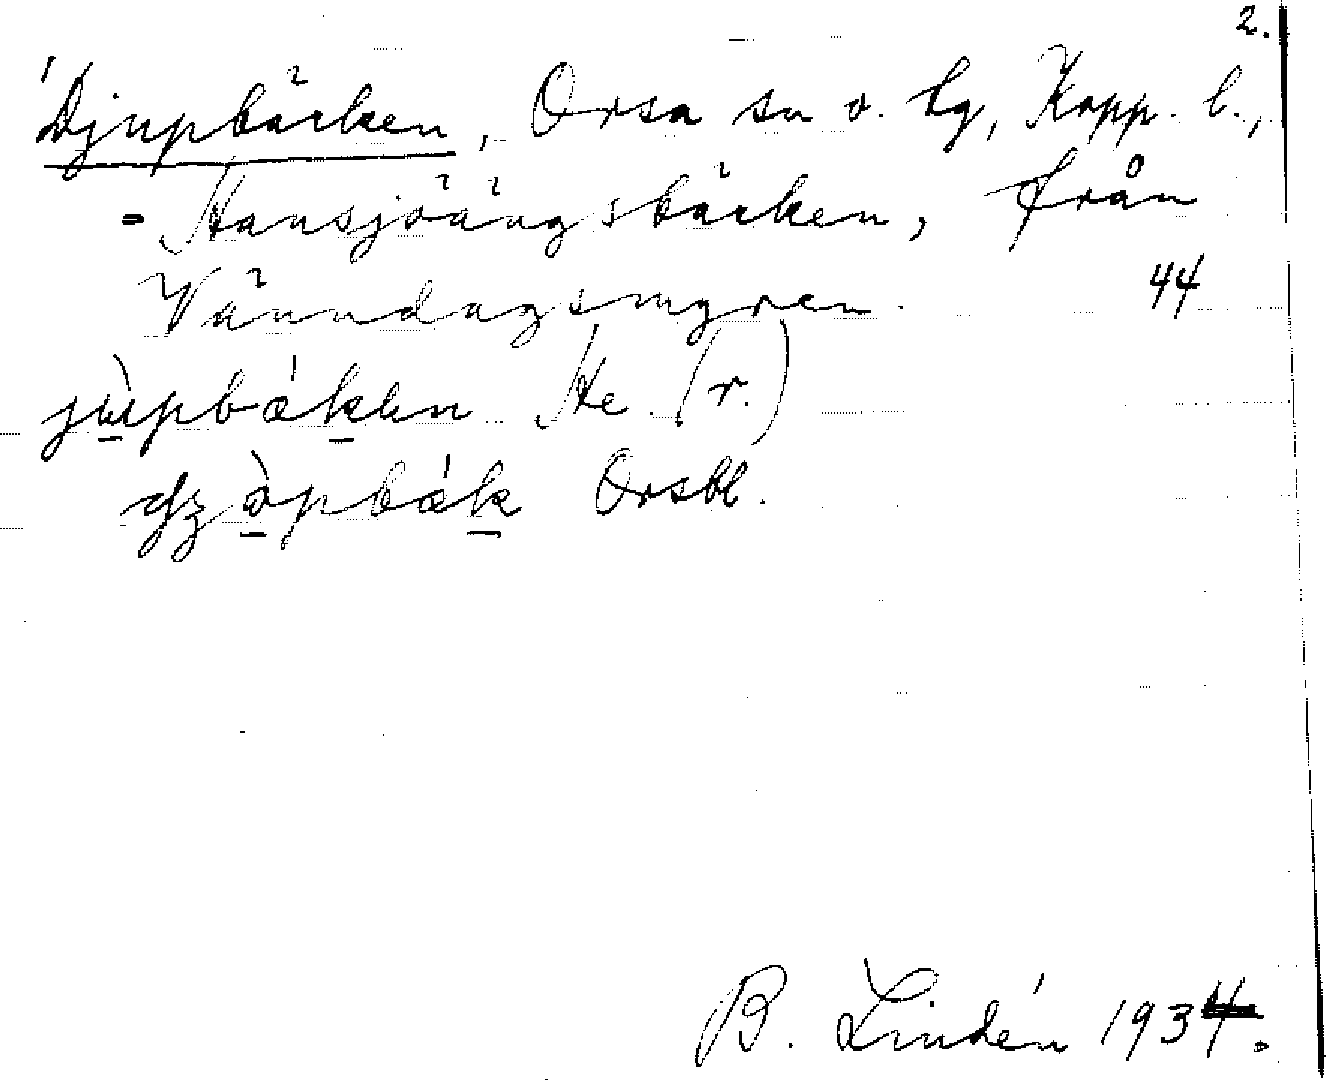 2.
'Djupbäcken, Orsa sn o. tg, Kopp. l.,
= Hansjöängsbäcken, från
Vänndagsmyren. 44
jùpbákен He (r.)
Orsbl.
B. Lindén 1934.